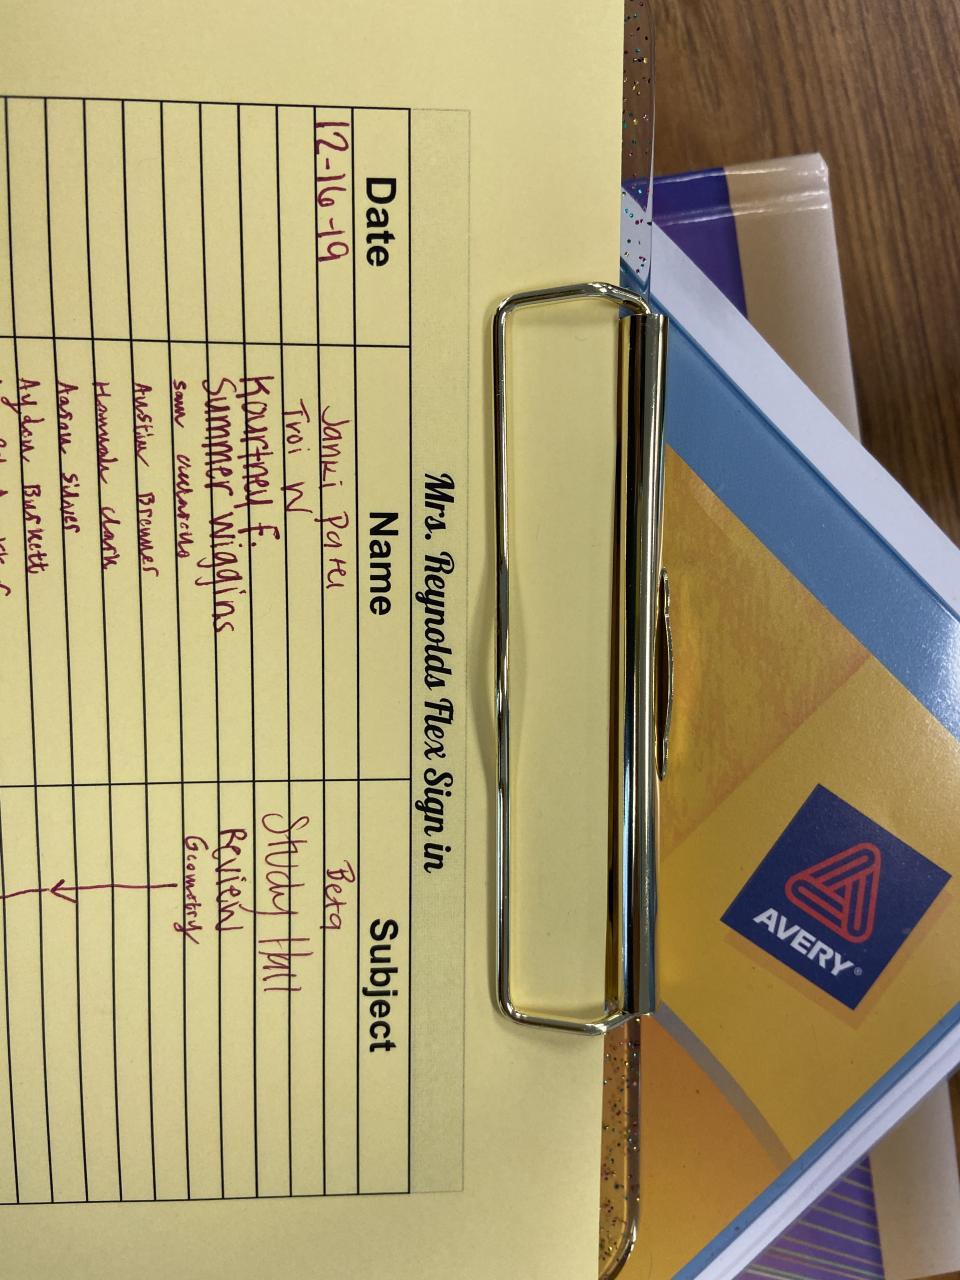 Mrs. Reynolds Flex Sign in
Date Name Subject
12-16-19 Janki Patel Beta
Troi W Study Hall
Kourtney F. Review
Summer Wiggins Geometry
sam
Austin Brenner
Hannah clark
Aaron Silver
Aydan Burkett
AVERY